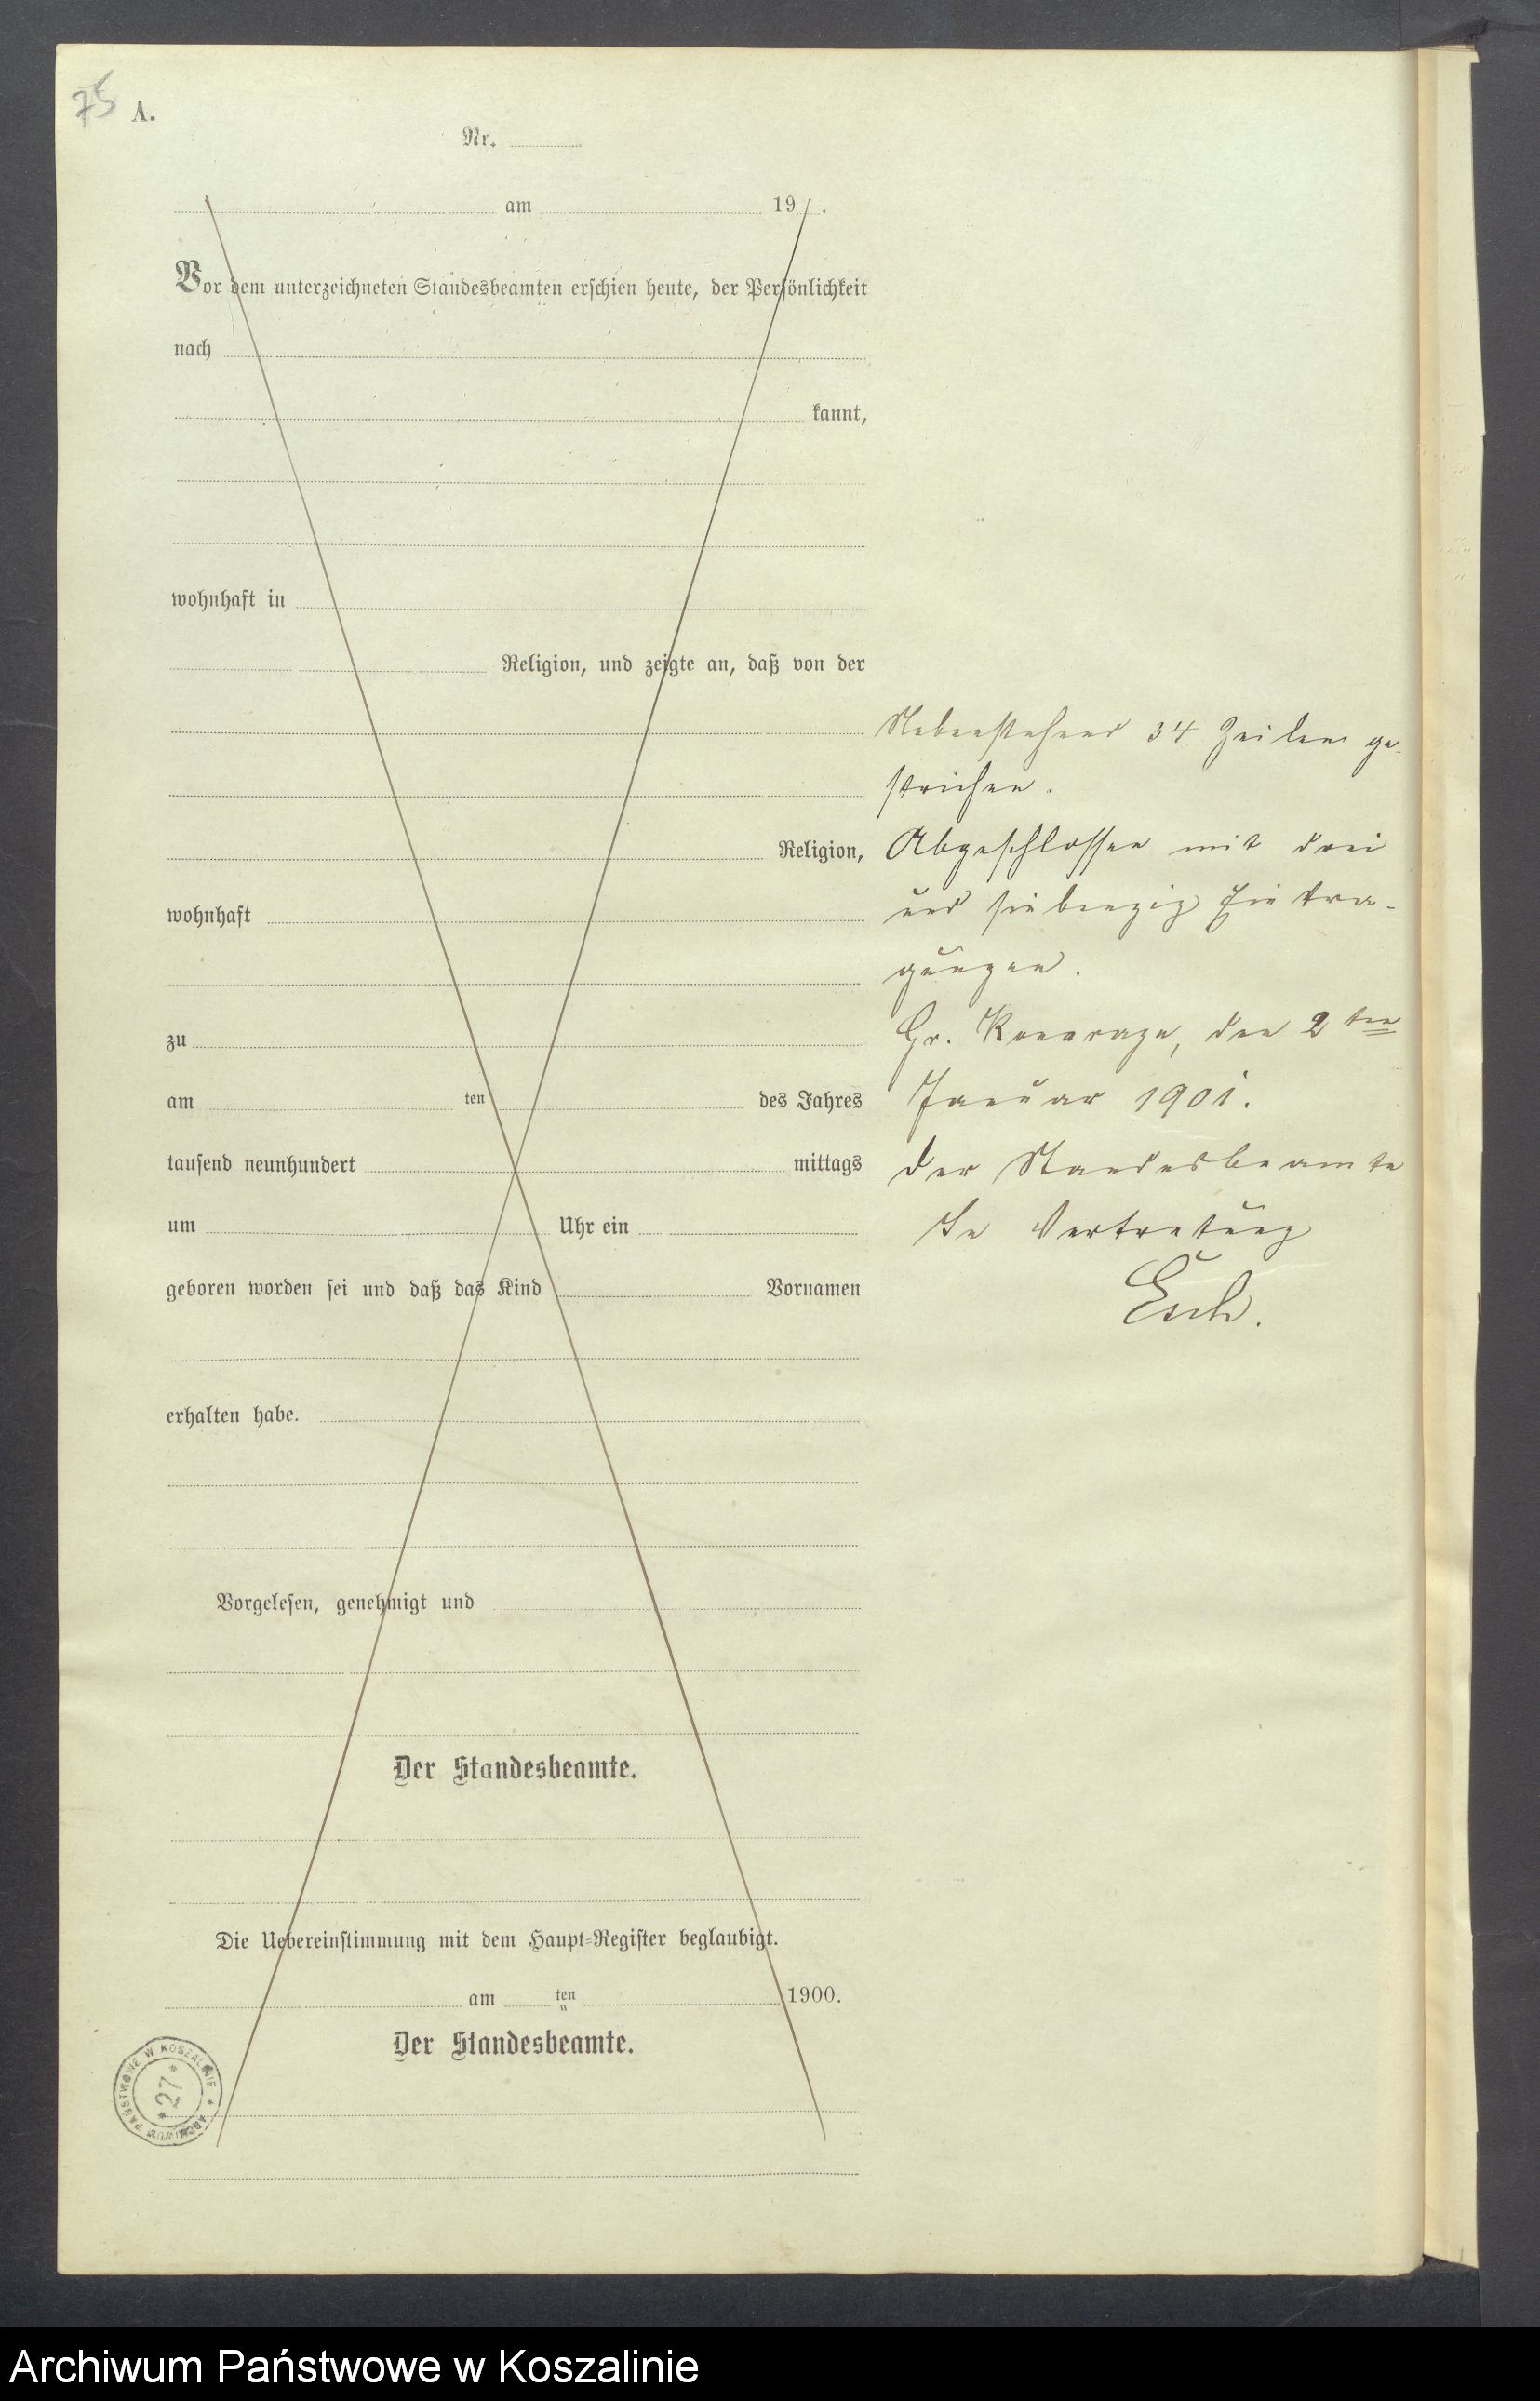 75 A.
Nr.
am 19 .
Vor dem unterzeichneten Standesbeamten erschien heute, der Persönlichkeit
nach
kannt,
wohnhaft in
Religion, und zeigte an, daß von der
Religion,
wohnhaft
zu
am ten des Jahres
tausend neunhundert mittags
um Uhr ein
geboren worden sei und daß das Kind Vornamen
erhalten habe.
Vorgelesen, genehmigt und
Der Standesbeamte.
Die Uebereinstimmung mit dem Haupt-Register beglaubigt.
am ten 1900.
Der Standesbeamte.
Nebenstehend 34 Zeilen ge-
strichen.
Abgeschlossen mit drei
und siebenzig Eintra-
gungen.
Gr. den 2ten
Januar 1901.
Der Standesbeamte
In Vertretung
Esch.
ARCHIWUM PAŃSTWOWE W KOSZALINIE
* 27 *
Archiwum Państwowe w Koszalinie